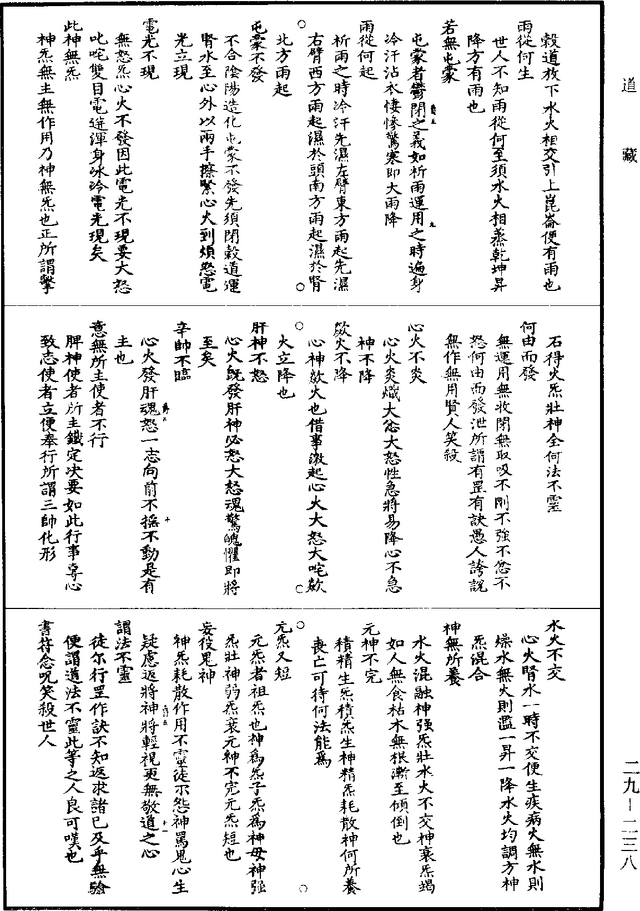 道藏
穀道放下水火相交引上崑崙便有雨也
雨從何生
世人不知雨從何至須水火相蒸乾坤昇
降方有雨也
若無屯蒙
屯蒙者鬱閉之義如祈雨運用之時遍身
冷汗沾衣悽慘驚寒即大雨降
雨從何起
祈雨之時冷汗先濕左臂東方雨起先濕
右臂西方雨起濕於頭南方雨起濕於腎
北方雨起
屯蒙不發
不合陰陽造化屯蒙不發先須閉穀道運
腎水至心外以兩手擦緊心火到煩怒電
光立現
電光不現
無怒炁心火不發因此電光不現要大怒
叱咤雙目電迸渾身冰冷電光現矣
此神無炁
神炁無主無作用乃神無炁也正所謂擊
石得火炁壯神全何法不靈
何由而發
無運用無收閉無取吸不剛不強不忿不
怒何由而發泄所謂有罡有訣愚人誇說
無作無用賢人笑殺
心火不炎
心火炎熾大忿大怒性急將易降心不急
神不降
歘火不降
心神歘火也借事激起心火大怒大咤歘
火立降也
肝神不怒
心火既發肝神必怒大怒魂驚魄懼即將
至矣
辛帥不臨
心火發肝魂怒一志向前不搖不動是有
主也
意無所主使者不行
脾神使者所主鐵定決要如此行事專心
致志使者立便奉行所謂三帥化形
水火不交
心火腎水一時不交便生疾病火無水則
燥水無火則濫一昇一降水火均調方神
炁混合
神無所養
水火混融神強炁壯水火不交神衰炁竭
如人無食枯木無根漸至傾倒也
元神不完
積精生炁積炁生神精炁耗散神何所養
喪亡可待何法能為
元炁又短
元炁者祖炁也神為炁子炁為神母神強
炁壯神弱炁衰元神不完元炁短也
妄役鬼神
神炁耗散作用不靈徒示怨神罵鬼心生
疑慮返將神將輕視更無敬道之心
謂法不靈
徒尔行罡作訣不知返求諸已及乎無驗
便謂道法不靈此等之人良可嘆也
書符念呪笑殺世人
二九—二三八